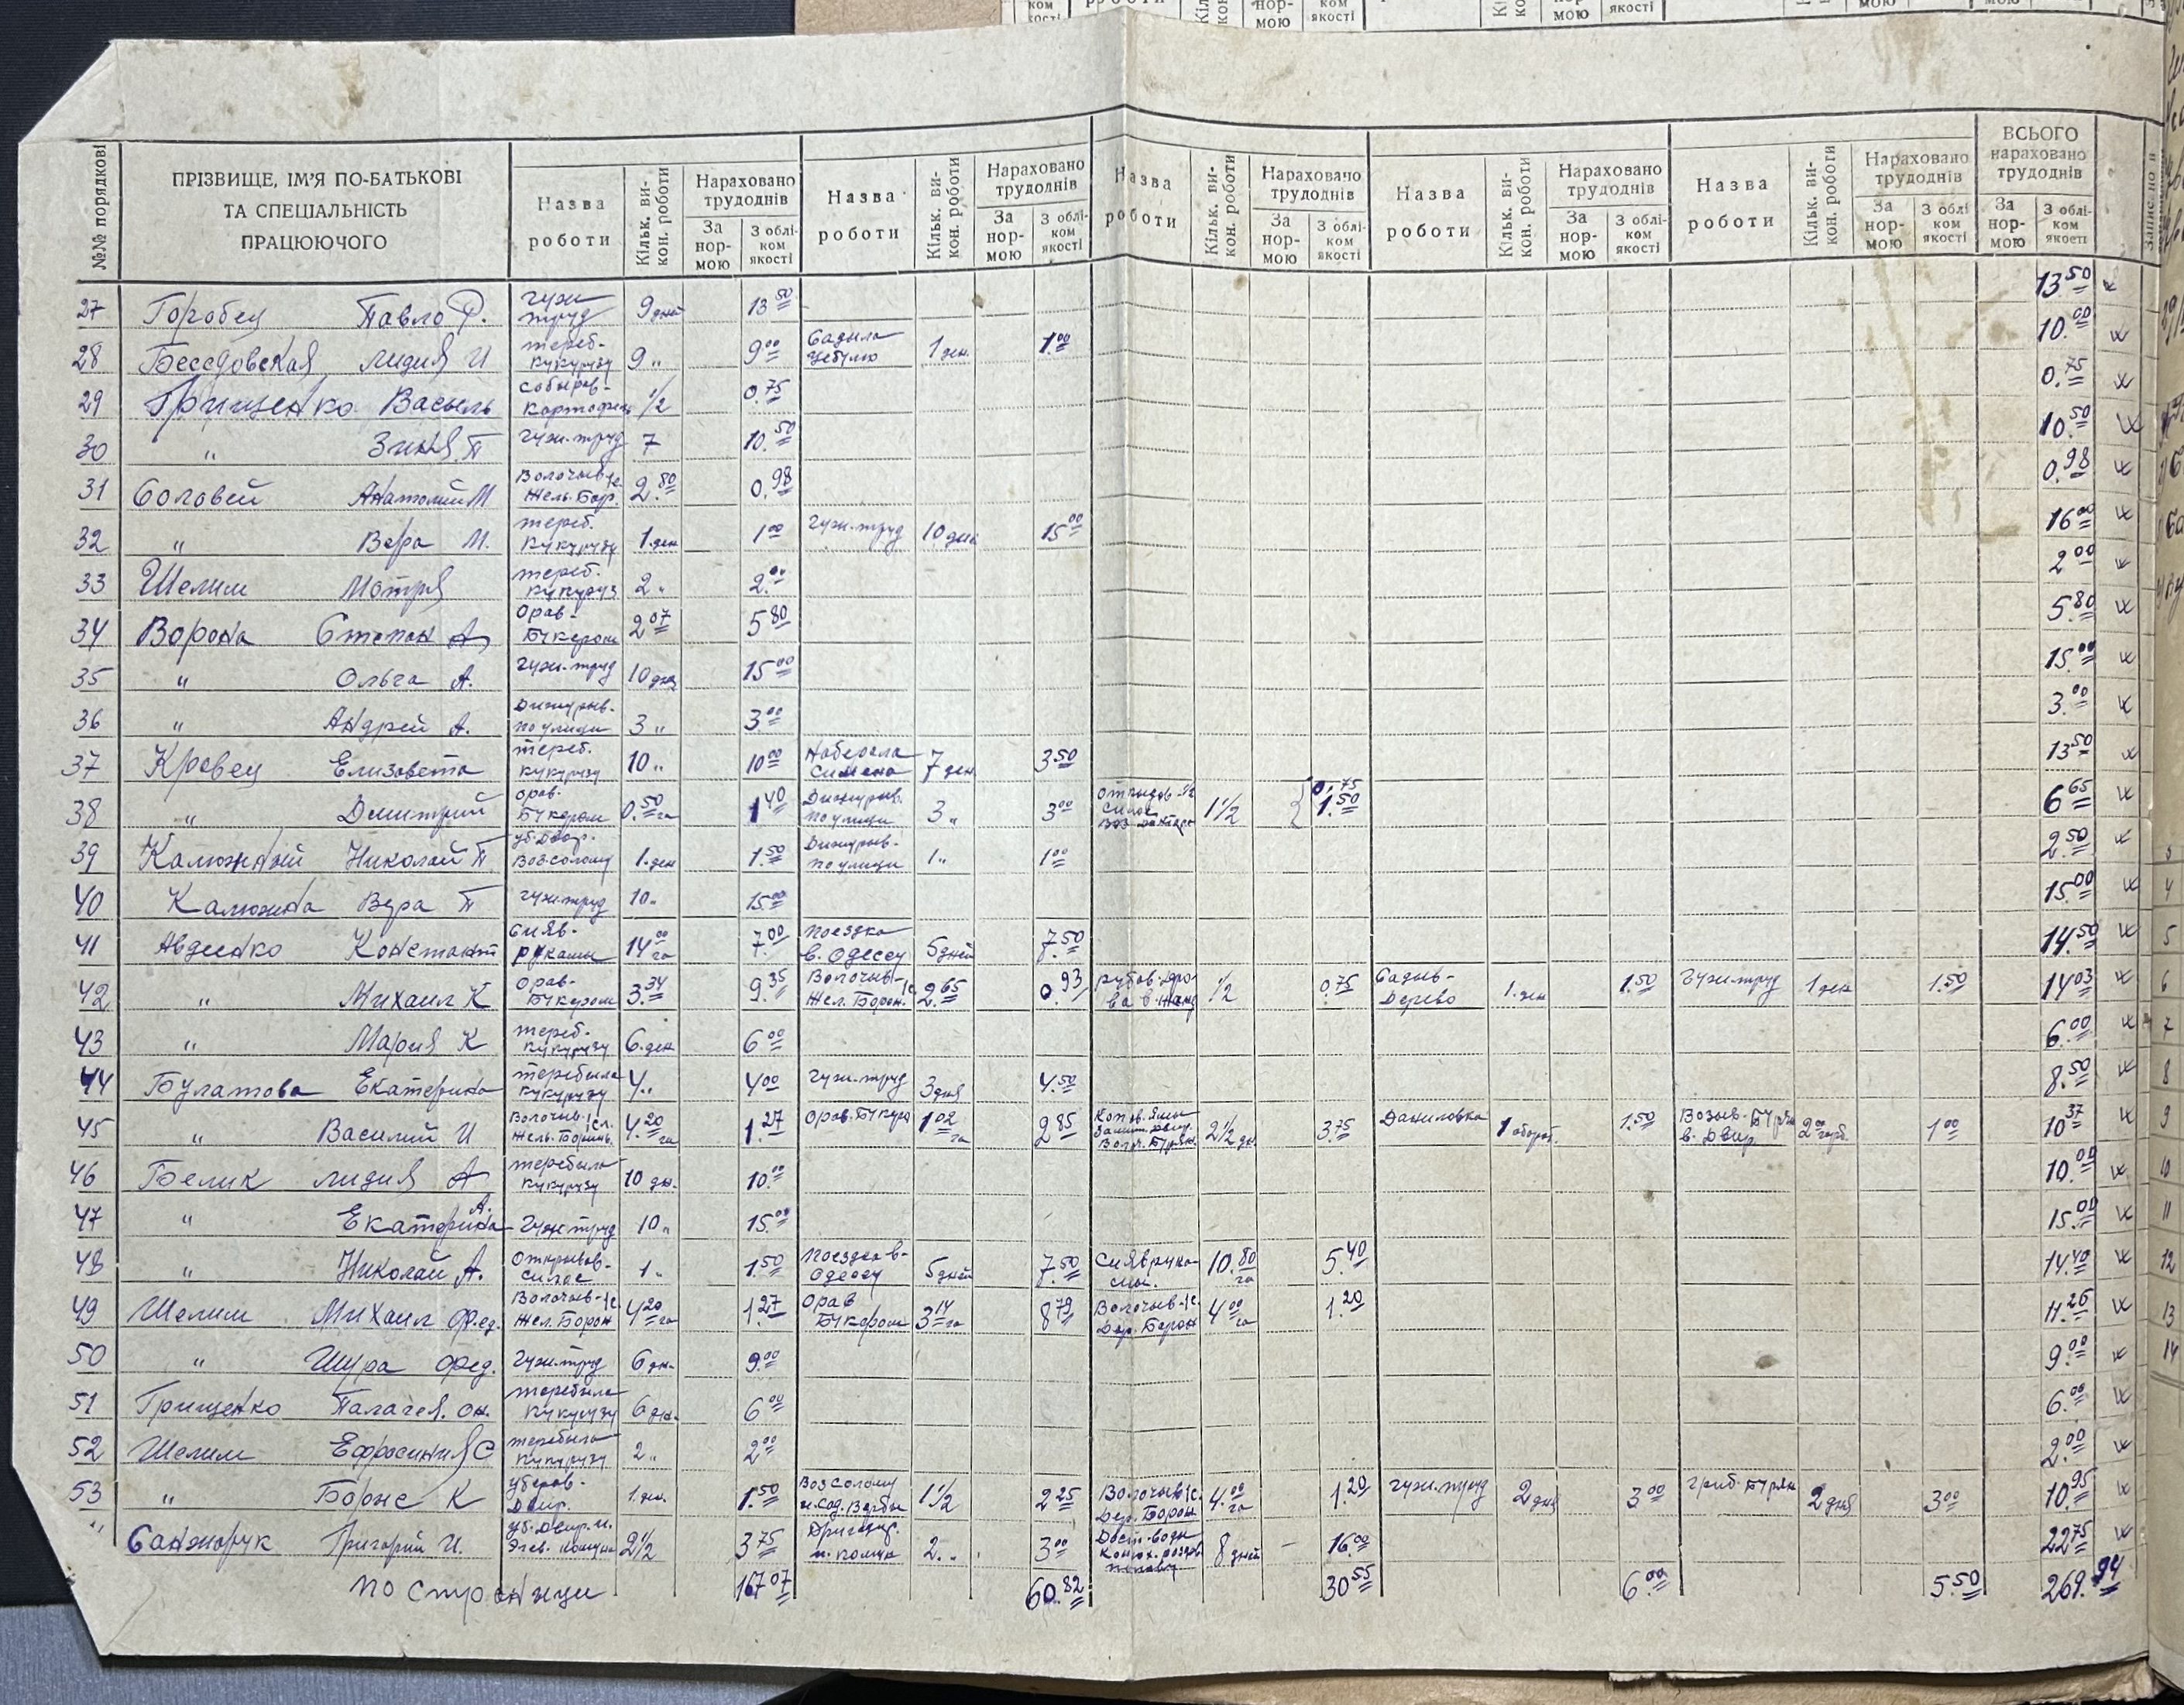 №№ порядкові
ПРІЗВИЩЕ, ІМ'Я ПО-БАТЬКОВІ
ТА СПЕЦІАЛЬНІСТЬ
ПРАЦЮЮЧОГО
Назва роботи
Кільк. ви-кон. роботи
Нараховано трудоднів
За нор-мою
З облі-ком якості
Назва роботи
Кільк. ви-кон. роботи
Нараховано трудоднів
За нор-мою
З облі-ком якості
Назва роботи
Кільк. ви-кон. роботи
Нараховано трудоднів
За нор-мою
З облі-ком якості
Назва роботи
Кільк. ви-кон. роботи
Нараховано трудоднів
За нор-мою
З облі-ком якості
Назва роботи
Кільк. ви-кон. роботи
Нараховано трудоднів
За нор-мою
З облі-ком якості
ВСЬОГО нараховано трудоднів
За нор-мою
З облі-ком якості
27 Горобец Павло Ф. гуж труд 9 дней 13.50 13.50
28 Беседовская Лидия И тереб- кукурузу 9 " 9.00 Садыла цебулю 1 ден. 1.00 10.00
29 Грищенко Васыль собырав- картофель 1/2 0.75 0.75
30 " Зина П гуж-труд 7 10.50 10.50
31 Соловей Анатолий М Волочыв- Жель. Бор. 2.80 0.98 0.98
32 " Вера М. тереб. кукурузу 1 ден 1.00 Гуж-труд 10 дни 15.00 16.00
33 Шелим Мотря тереб. кукуруз 2 " 2.00 2.00
34 Ворона Степан А Орав- Букером 2.07 5.80 5.80
35 " Ольга А. гуж-труд 10 дня 15.00 15.00
36 " Андрей А. Дижурыв- по улици 3 " 3.00 3.00
37 Кравец Елизовета тереб. кукурузу 10 " 10.00 Наберала Симена 7 ден 3.50 13.50
38 " Дмитрий орав- Букером 0.50 га 1.40 Дижурыв. по улици 3 " 3.00 Силос 1 1/2 0.75 1.50 6.65
39 Калюжный Николай П уб. Двор. Воз. солому 1 ден 1.50 Дижурыв- по улици 1 " 1.00 2.50
40 Калюжна Вера П гуж-труд 10 " 15.00 15.00
41 Авдеенко Констант Сияв- рукамы 14.00 га 7.00 Поездка в. Одессу 5 дней 7.50 14.50
42 " Михаил К Орав- Букером 3.34 9.35 Волочыв- Жел. Борон. 2.65 0.93 рубав. дро ва в 1/2 0.75 Садыв- Дерево 1 ден 1.50 Гуж-труд 1 ден 1.50 14.03
43 " Мария К тереб- кукурузу 6 ден 6.00 6.00
44 Булатова Екатерина теребыла кукурузу 4 " 4.00 Гуж-труд 3 дня 4.50 8.50
45 " Василий И Волочыв- Жель. Боринь. 4.20 га 1.27 Орав. Букера 1.02 га 2.85 Копав. Ямы 2 1/2 дн. 3.75 Даниловка 1 оборот. 1.50 Возыв- Бурян в. Двир. 2.00 1.00 10.37
46 Белик Лидия А теребыла кукурузу 10 дн. 10.00 10.00
47 " Екатерина А. Гуж-труд 10 " 15.00 15.00
48 " Николай А. Открывав- силос 1 " 1.50 Поездка в- Одессу 5 дней 7.50 Сияв рука- мы. 10.80 га 5.40 14.40
49 Шелим Михаил Фед. Волочыв- Жел. Борон 4.20 га 1.27 Орав Букером 3.14 га 8.79 Волочыв- Дер. Борон 4.00 га 1.20 11.26
50 " Шура Фед. Гуж-труд 6 дн. 9.00 9.00
51 Грищенко Палагея. Он. теребыла кукурузу 6 ден. 6.00 6.00
52 Шелим Ефросиния С теребыла кукурузу 2 " 2.00 2.00
53 " Борис К уберав- Двир. 1 ден. 1.50 Воз солому и. сад. Вербы 1 1/2 2.25 Волочыв Дер. Борон 4.00 га 1.20 гуж-труд 2 дня 3.00 граб. Бурян 2 дня 3.00 10.95
" Санжарук Григорий И. уб. Двир. и. 2 1/2 3.75 2 " 3.00 Дост. воды 8 дней 16.00 22.75
по страници 167.07 60.82 30.55 6.00 5.50 269.94